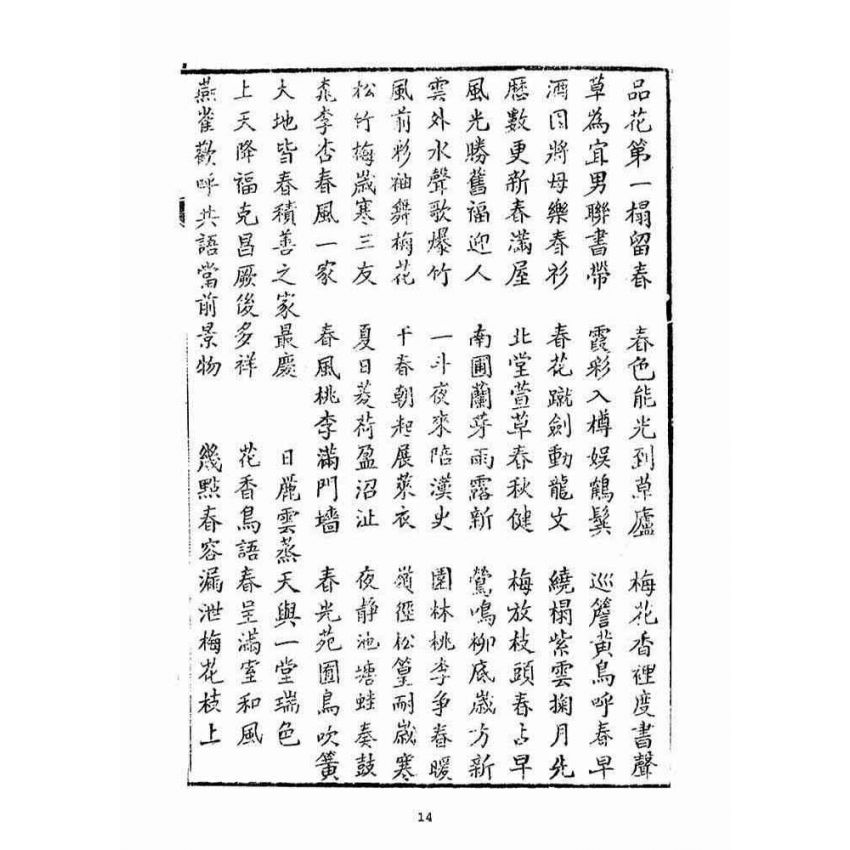 品花第一榻留春 春色能光到草廬 梅花香裡度書聲
草為宜男聯書帶 霞彩入樽娱鶴鬓 巡簷黃鳥呼春早
酒因將母樂春衫 春花蹴劍動龍文 繞榻紫雲掬月先
曆數更新春滿屋 北堂萱草春秋健 梅放枝頭春占早
風光勝舊福迎人 南圃蘭芽雨露新 鶯鳴柳底歲方新
雲外水聲歌爆竹 一斗夜來陪漢史 園林桃李爭春暖
風前彩袖舞梅花 千春朝起展萊衣 嶺徑松篁耐歲寒
松竹梅歲寒三友 夏日菱荷盈沼沚 夜靜池塘蛙奏鼓
桃李杏春風一家 春風桃李滿門墻 春光苑囿鳥吹簧
大地皆春積善之家最慶 日麗雲蒸天與一堂瑞色
上天降福克昌厥後多祥 花香鳥語春呈滿室和風
燕雀歡呼共語當前景物 幾點春容漏泄梅花枝上
14